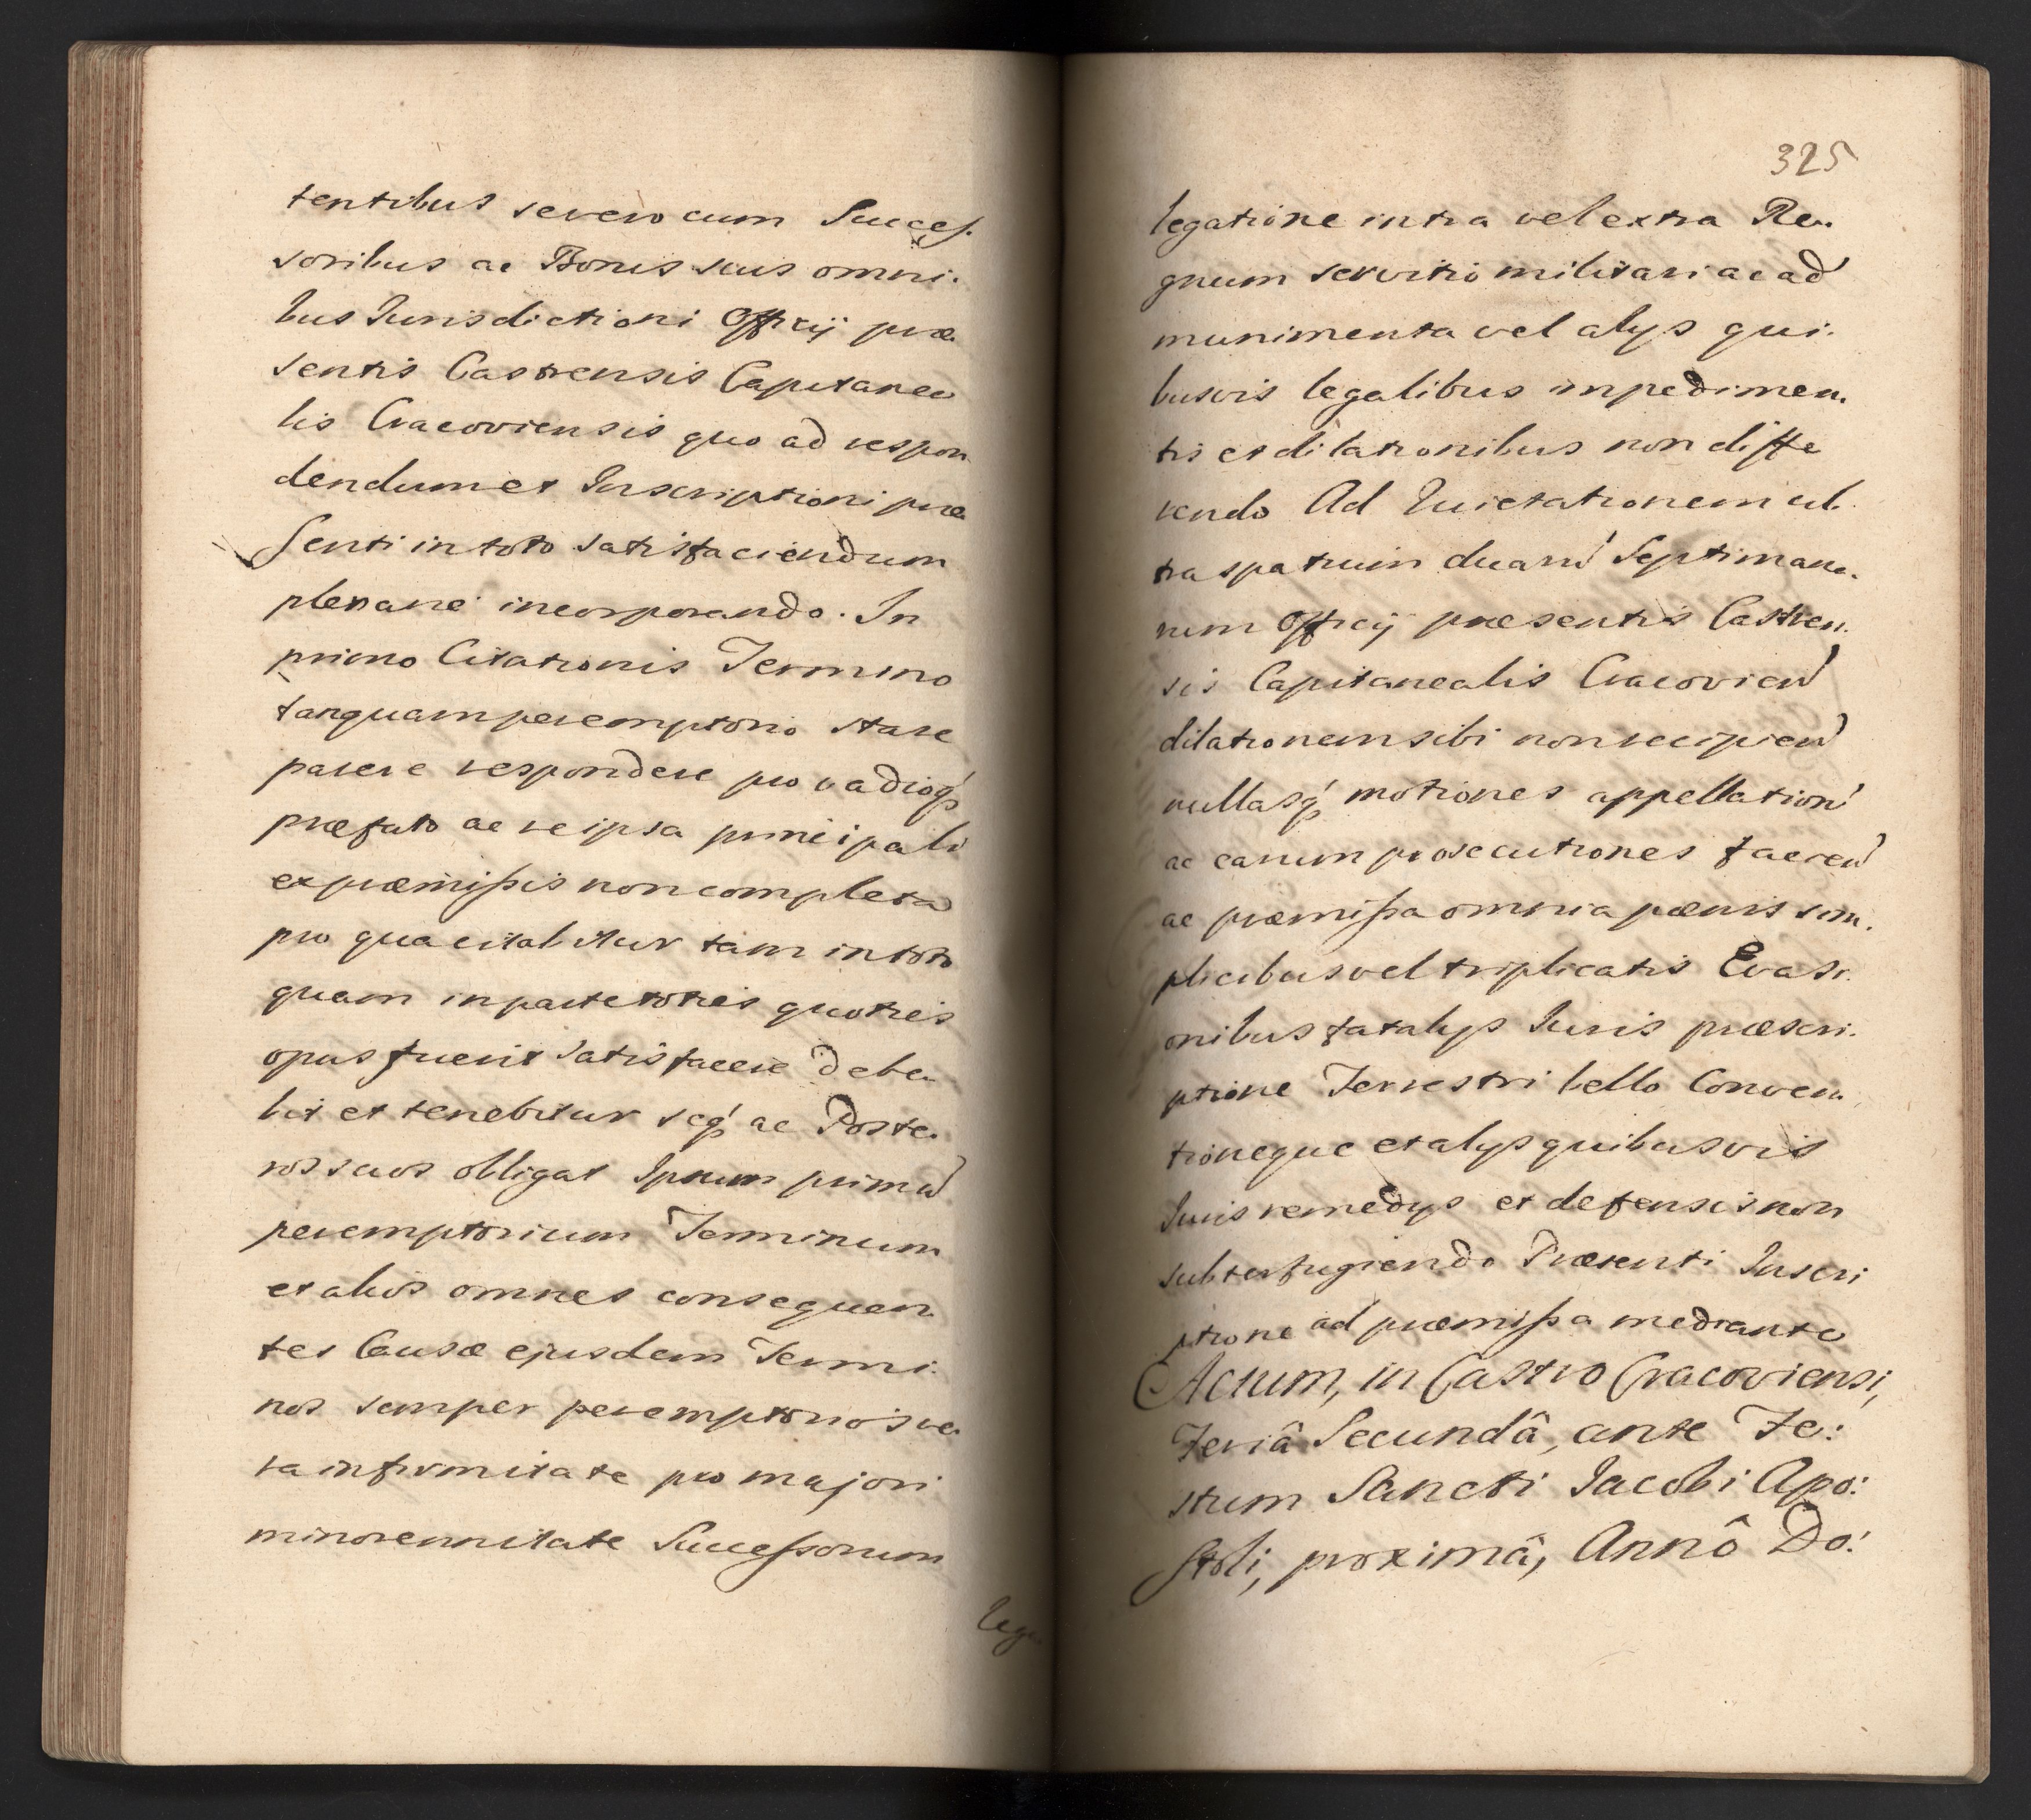 tentibus severo cum Succes.
soribus ac Bonis suis omni.
bus Jurisdictioni Officij præ
sentis Castrensis Capitanea
lis Cracoviensis quo ad respon
dendum et Inscriptioni præ
senti in toto satisfaciendum
plenarie incorporando. In
primo Citationis Termino
tanquam peremptorio stare
parere respondere pro vadioq́
præfato ac re ipsa principali
ex præmissis non completa
pro qua citabitur tam in toto
quam in parte toties quoties
opus fuerit satisfacere debe
bit et tenebitur seq́ ac Poste.
ros suos obligat Ipsum primū
peremptorium Terminum
et alios omnes consequen
tes Causæ ejusdem Termi.
nos semper peremptorios ve
ra infirmitate pro majori
minorennitate Successorum
lega
325
legatione intra vel extra Re.
gnum servitio militari ac ad
munimenta vel alijs qui.
busvis legalibus impedimen.
tis et dilationibus non diffe
rendo Ad Quietationem ul.
tra spatium duarū Septimana.
rum Officij præsentis Castren.
sis Capitanealis Cracovien̄
dilationem sibi non recipien̄
nullasq́ motiones appellation̄
ac earum prosecutiones facien̄
ac præmissa omnia pænis sim.
plicibus vel triplicatis Evasi.
onibus fatalijs Juris præscri.
ptione Terrestri bello Conven
tioneque et alijs quibusvis
Juris remedijs et defensis non
subterfugiendo Præsenti Inscri
ptione ad præmissa mediante
Actum, in Castro Cracoviensi,
Feriâ Secundâ, ante Fe:
stum Sancti Jacobi Apo:
stoli, proximâ, Annô Do: